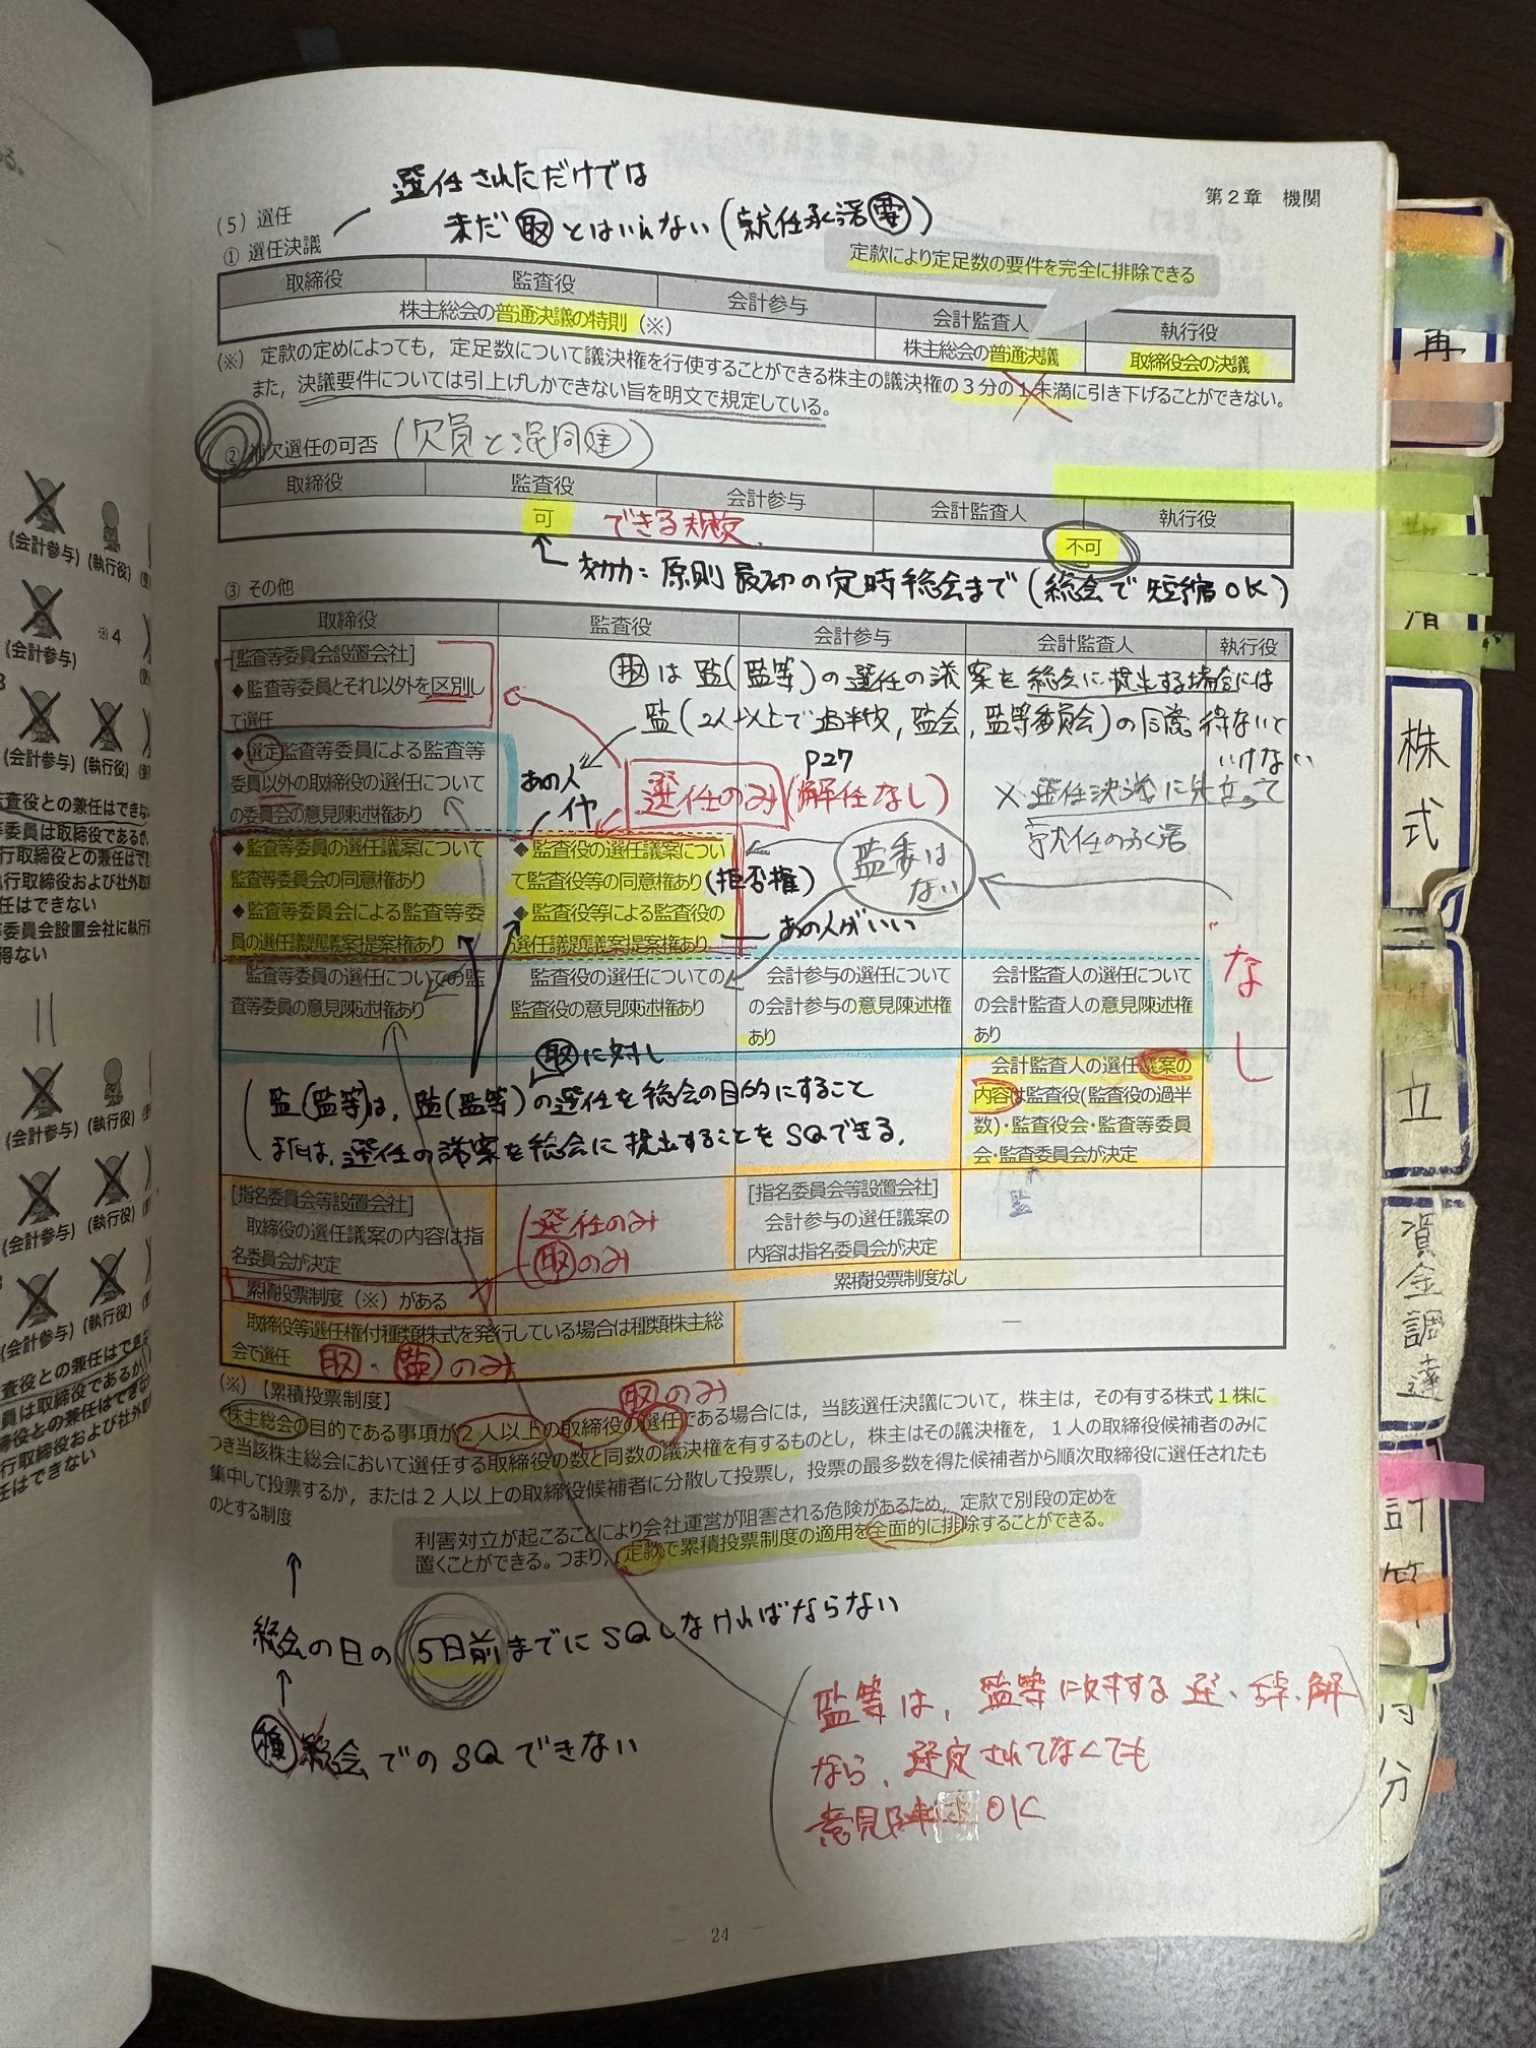 第２章　機関
選任されただけでは
未だ 取 とはいえない（就任承諾 要）
(５) 選任
① 選任決議
定款により定足数の要件を完全に排除できる
取締役　監査役　会計参与　会計監査人　執行役
株主総会の普通決議の特則（※）　株主総会の普通決議　取締役会の決議
(※)　定款の定めによっても，定足数について議決権を行使することができる株主の議決権の３分の１未満に引き下げることができない。
また，決議要件については引上げしかできない旨を明文で規定している。
② 補欠選任の可否（欠員と混同注）
取締役　監査役　会計参与　会計監査人　執行役
可　できる規定　不可
効力：原則 最初の定時総会まで（総会で短縮OK）
③ その他
取締役　監査役　会計参与　会計監査人　執行役
[監査等委員会設置会社]
◆監査等委員とそれ以外を区別し
て選任
◆選定監査等委員による監査等
委員以外の取締役の選任について
の委員会の意見陳述権あり
取は 監（監等）の選任の議案を総会に提出する場合には
監（2人以上で過半数，監会，監等委員会）の同意得ないと
いけない
P27
あの人
イヤ
選任のみ（解任なし）
× 選任決議に先立って
就任の承諾
◆監査等委員の選任議案について
監査等委員会の同意権あり
◆監査等委員会による監査等委
員の選任議題議案提案権あり
◆監査役の選任議案につい
て監査役等の同意権あり（拒否権）
◆監査役等による監査役の
選任議題議案提案権あり
監委は
ない
あの人がいい
なし
監査等委員の選任についての監
査等委員の意見陳述権あり
監査役の選任についての
監査役の意見陳述権あり
会計参与の選任について
の会計参与の意見陳述権
あり
会計監査人の選任について
の会計監査人の意見陳述権
あり
取に対し
監（監等）は，監（監等）の選任を総会の目的にすること
または，選任の議案を総会に提出することをSQできる．
会計監査人の選任議案の
内容は監査役(監査役の過半
数)・監査役会・監査等委員
会・監査委員会が決定
監
[指名委員会等設置会社]
取締役の選任議案の内容は指
名委員会が決定
選任のみ
取のみ
[指名委員会等設置会社]
会計参与の選任議案の
内容は指名委員会が決定
累積投票制度（※）がある　累積投票制度なし
取締役等選任権付種類株式を発行している場合は種類株主総
会で選任　取・監のみ
―
(※)【累積投票制度】
取のみ
株主総会の目的である事項が２人以上の取締役の選任である場合には，当該選任決議について，株主は，その有する株式１株に
つき当該株主総会において選任する取締役の数と同数の議決権を有するものとし，株主はその議決権を，１人の取締役候補者のみに
集中して投票するか，または２人以上の取締役候補者に分散して投票し，投票の最多数を得た候補者から順次取締役に選任されたも
のとする制度
利害対立が起こることにより会社運営が阻害される危険があるため，定款で別段の定めを
置くことができる。つまり，定款で累積投票制度の適用を全面的に排除することができる。
総会の日の5日前までにSQしなければならない
種 総会でのSQできない
監等は，監等に対する選・辞・解
なら，選定されてなくても
意見陳述OK
― 24 ―
(会計参与) (執行役)
(会計参与)
※４
(会計参与) (執行役)
査役との兼任はできな
等委員は取締役であるが
行取締役との兼任はでき
執行取締役および社外取締
任はできない
等委員会設置会社に執行
得ない
(会計参与) (執行役)
(会計参与) (執行役)
(会計参与) (執行役)
査役との兼任はでき
員は取締役であるが
役との兼任はできない
行取締役および社外
任はできない
再
清
株式
立
資金調達
計
分